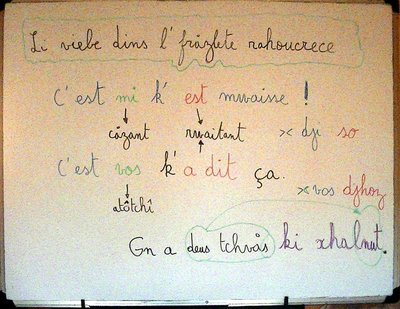 Li viebe dins l' fråzlete rahoucrece
C'est mi k' est mwaisse !
cåzant rwaitant >< dji so
C'est vos k' a dit ça.
atôtchî >< vos djhoz
Gn a deus tchvås ki xhalnut.